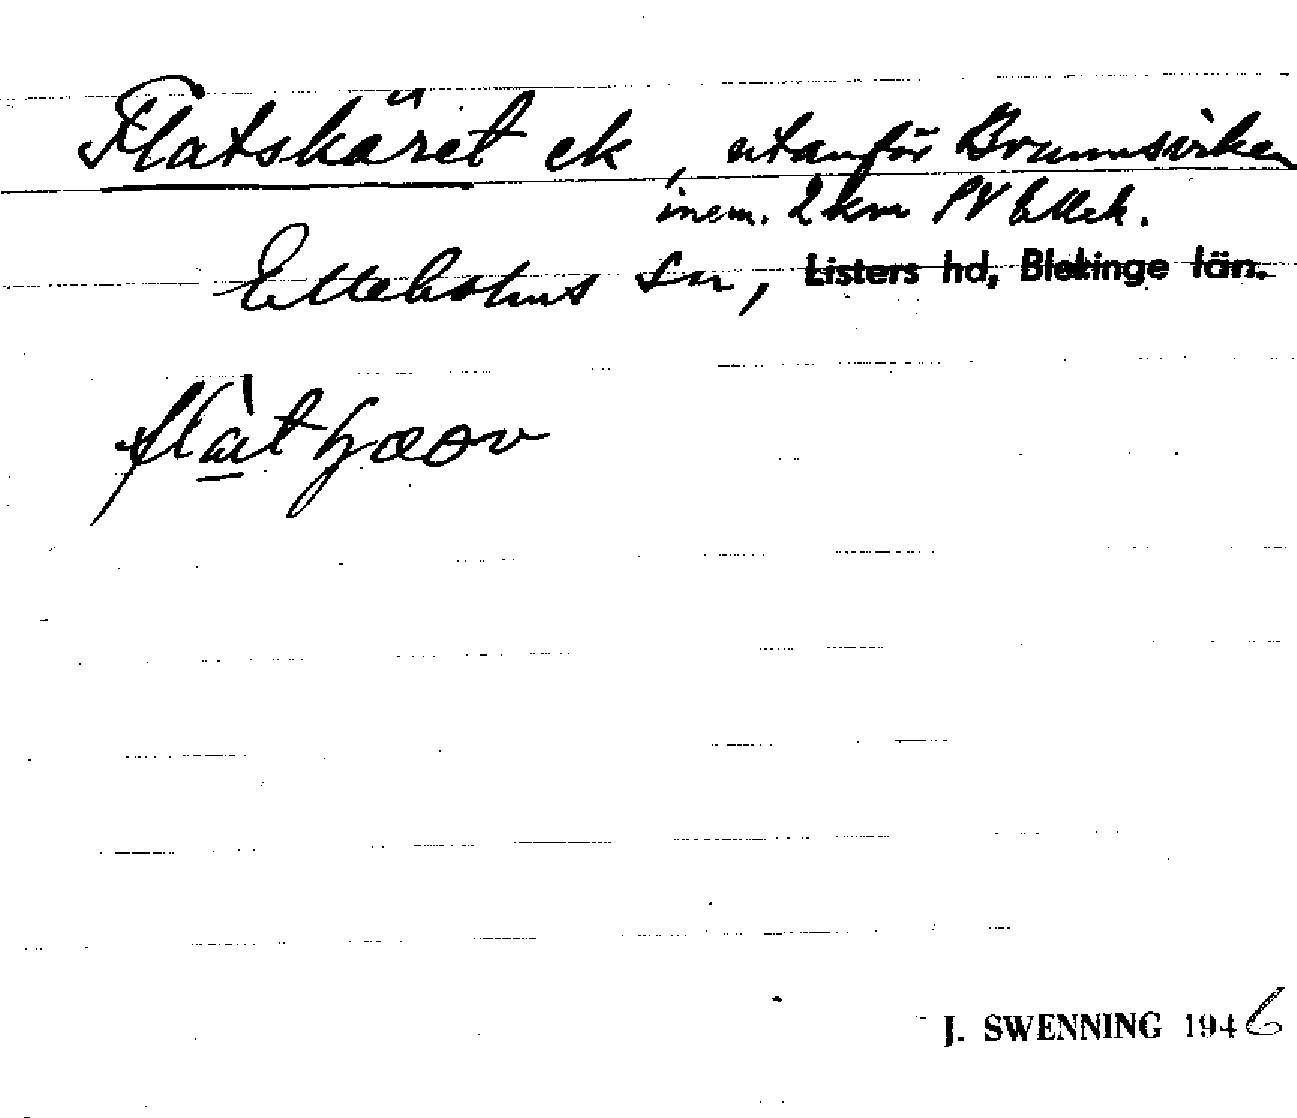 Flatskäret ek, utanför Brunnsviken
inem. 2 km SV Elleh.
Elleholms sn, Listers hd, Blekinge län.
J. SWENNING 1946